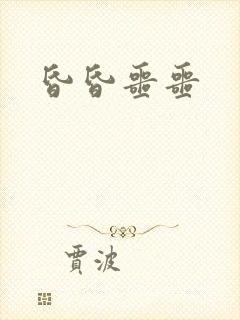 昏昏噩噩
賈波